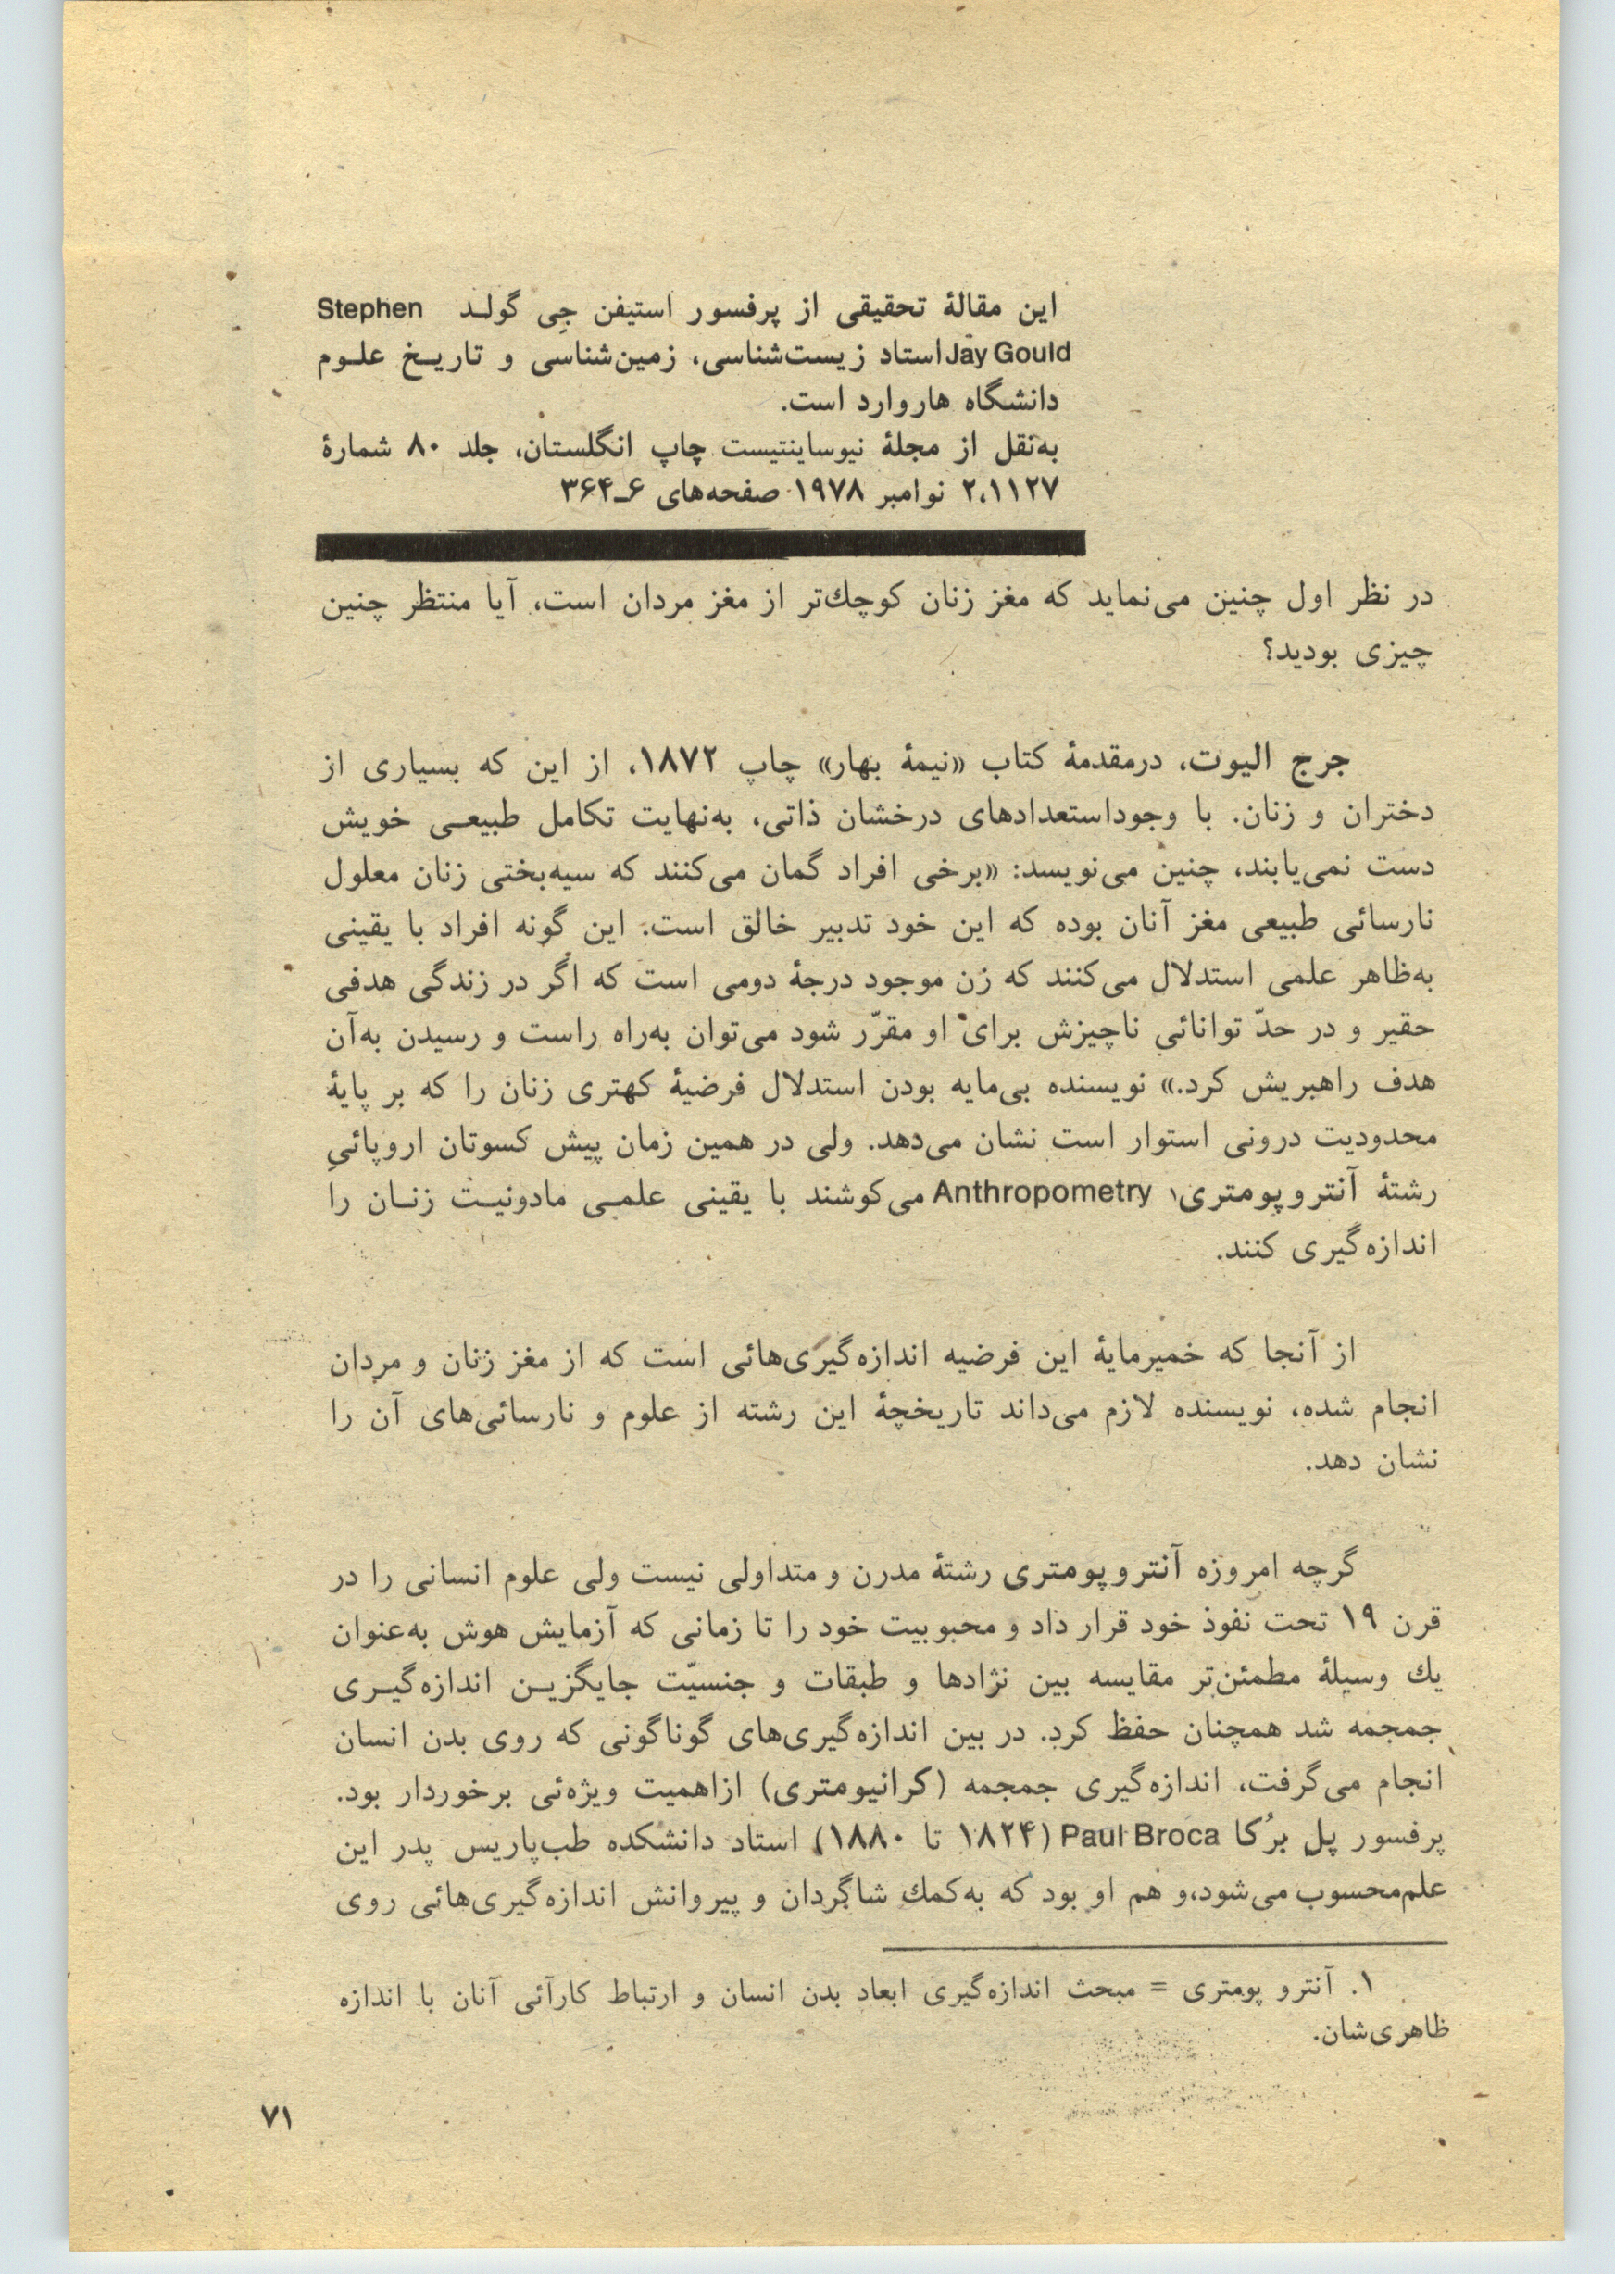 این مقالهٔ تحقیقی از پرفسور استیفن جِی گولـد Stephen
Jay Gould استاد زیست‌شناسی، زمین‌شناسی و تاریـخ علـوم
دانشگاه هاروارد است.
به‌نقل از مجلهٔ نیوساینتیست چاپ انگلستان، جلد ۸۰ شمارهٔ
۲،۱۱۲۷ نوامبر ۱۹۷۸ صفحه‌های ۶ـ۳۶۴
در نظر اول چنین می‌نماید که مغز زنان کوچك‌تر از مغز مردان است، آیا منتظر چنین
چیزی بودید؟
جرج الیوت، درمقدمهٔ کتاب «نیمهٔ بهار» چاپ ۱۸۷۲، از این که بسیاری از
دختران و زنان. با وجوداستعدادهای درخشان ذاتی، به‌نهایت تکامل طبیعـی خویش
دست نمی‌یابند، چنین می‌نویسد: «برخی افراد گمان می‌کنند که سیه‌بختی زنان معلول
نارسائی طبیعی مغز آنان بوده که این خود تدبیر خالق است. این گونه افراد با یقینی
به‌ظاهر علمی استدلال می‌کنند که زن موجود درجهٔ دومی است که اگر در زندگی هدفی
حقیر و در حدّ توانائی ناچیزش برای او مقرّر شود می‌توان به‌راه راست و رسیدن به‌آن
هدف راهبریش کرد.» نویسنده بی‌مایه بودن استدلال فرضیهٔ کهتری زنان را که بر پایهٔ
محدودیت درونی استوار است نشان می‌دهد. ولی در همین زمان پیش کسوتان اروپائیِ
رشتهٔ آنتروپومتری۱ Anthropometry می‌کوشند با یقینی علمـی مادونیـت زنـان را
اندازه‌گیری کنند.
از آنجا که خمیرمایهٔ این فرضیه اندازه‌گیری‌هائی است که از مغز زنان و مردان
انجام شده، نویسنده لازم می‌داند تاریخچهٔ این رشته از علوم و نارسائی‌های آن را
نشان دهد.
گرچه امروزه آنتروپومتری رشتهٔ مدرن و متداولی نیست ولی علوم انسانی را در
قرن ۱۹ تحت نفوذ خود قرار داد و محبوبیت خود را تا زمانی که آزمایش هوش به‌عنوان
یك وسیلهٔ مطمئن‌تر مقایسه بین نژادها و طبقات و جنسیّت جایگزیـن اندازه‌گیـری
جمجمه شد همچنان حفظ کرد. در بین اندازه‌گیری‌های گوناگونی که روی بدن انسان
انجام می‌گرفت، اندازه‌گیری جمجمه (کرانیومتری) ازاهمیت ویژه‌ئی برخوردار بود.
پرفسور پل برُکا Paul Broca (۱۸۲۴ تا ۱۸۸۰) استاد دانشکده طب‌پاریس پدر این
علم‌محسوب می‌شود،و هم او بود که به‌کمك شاگردان و پیروانش اندازه‌گیری‌هائی روی
۱. آنترو پومتری = مبحث اندازه‌گیری ابعاد بدن انسان و ارتباط کارآئی آنان با اندازه
ظاهری‌شان.
۷۱